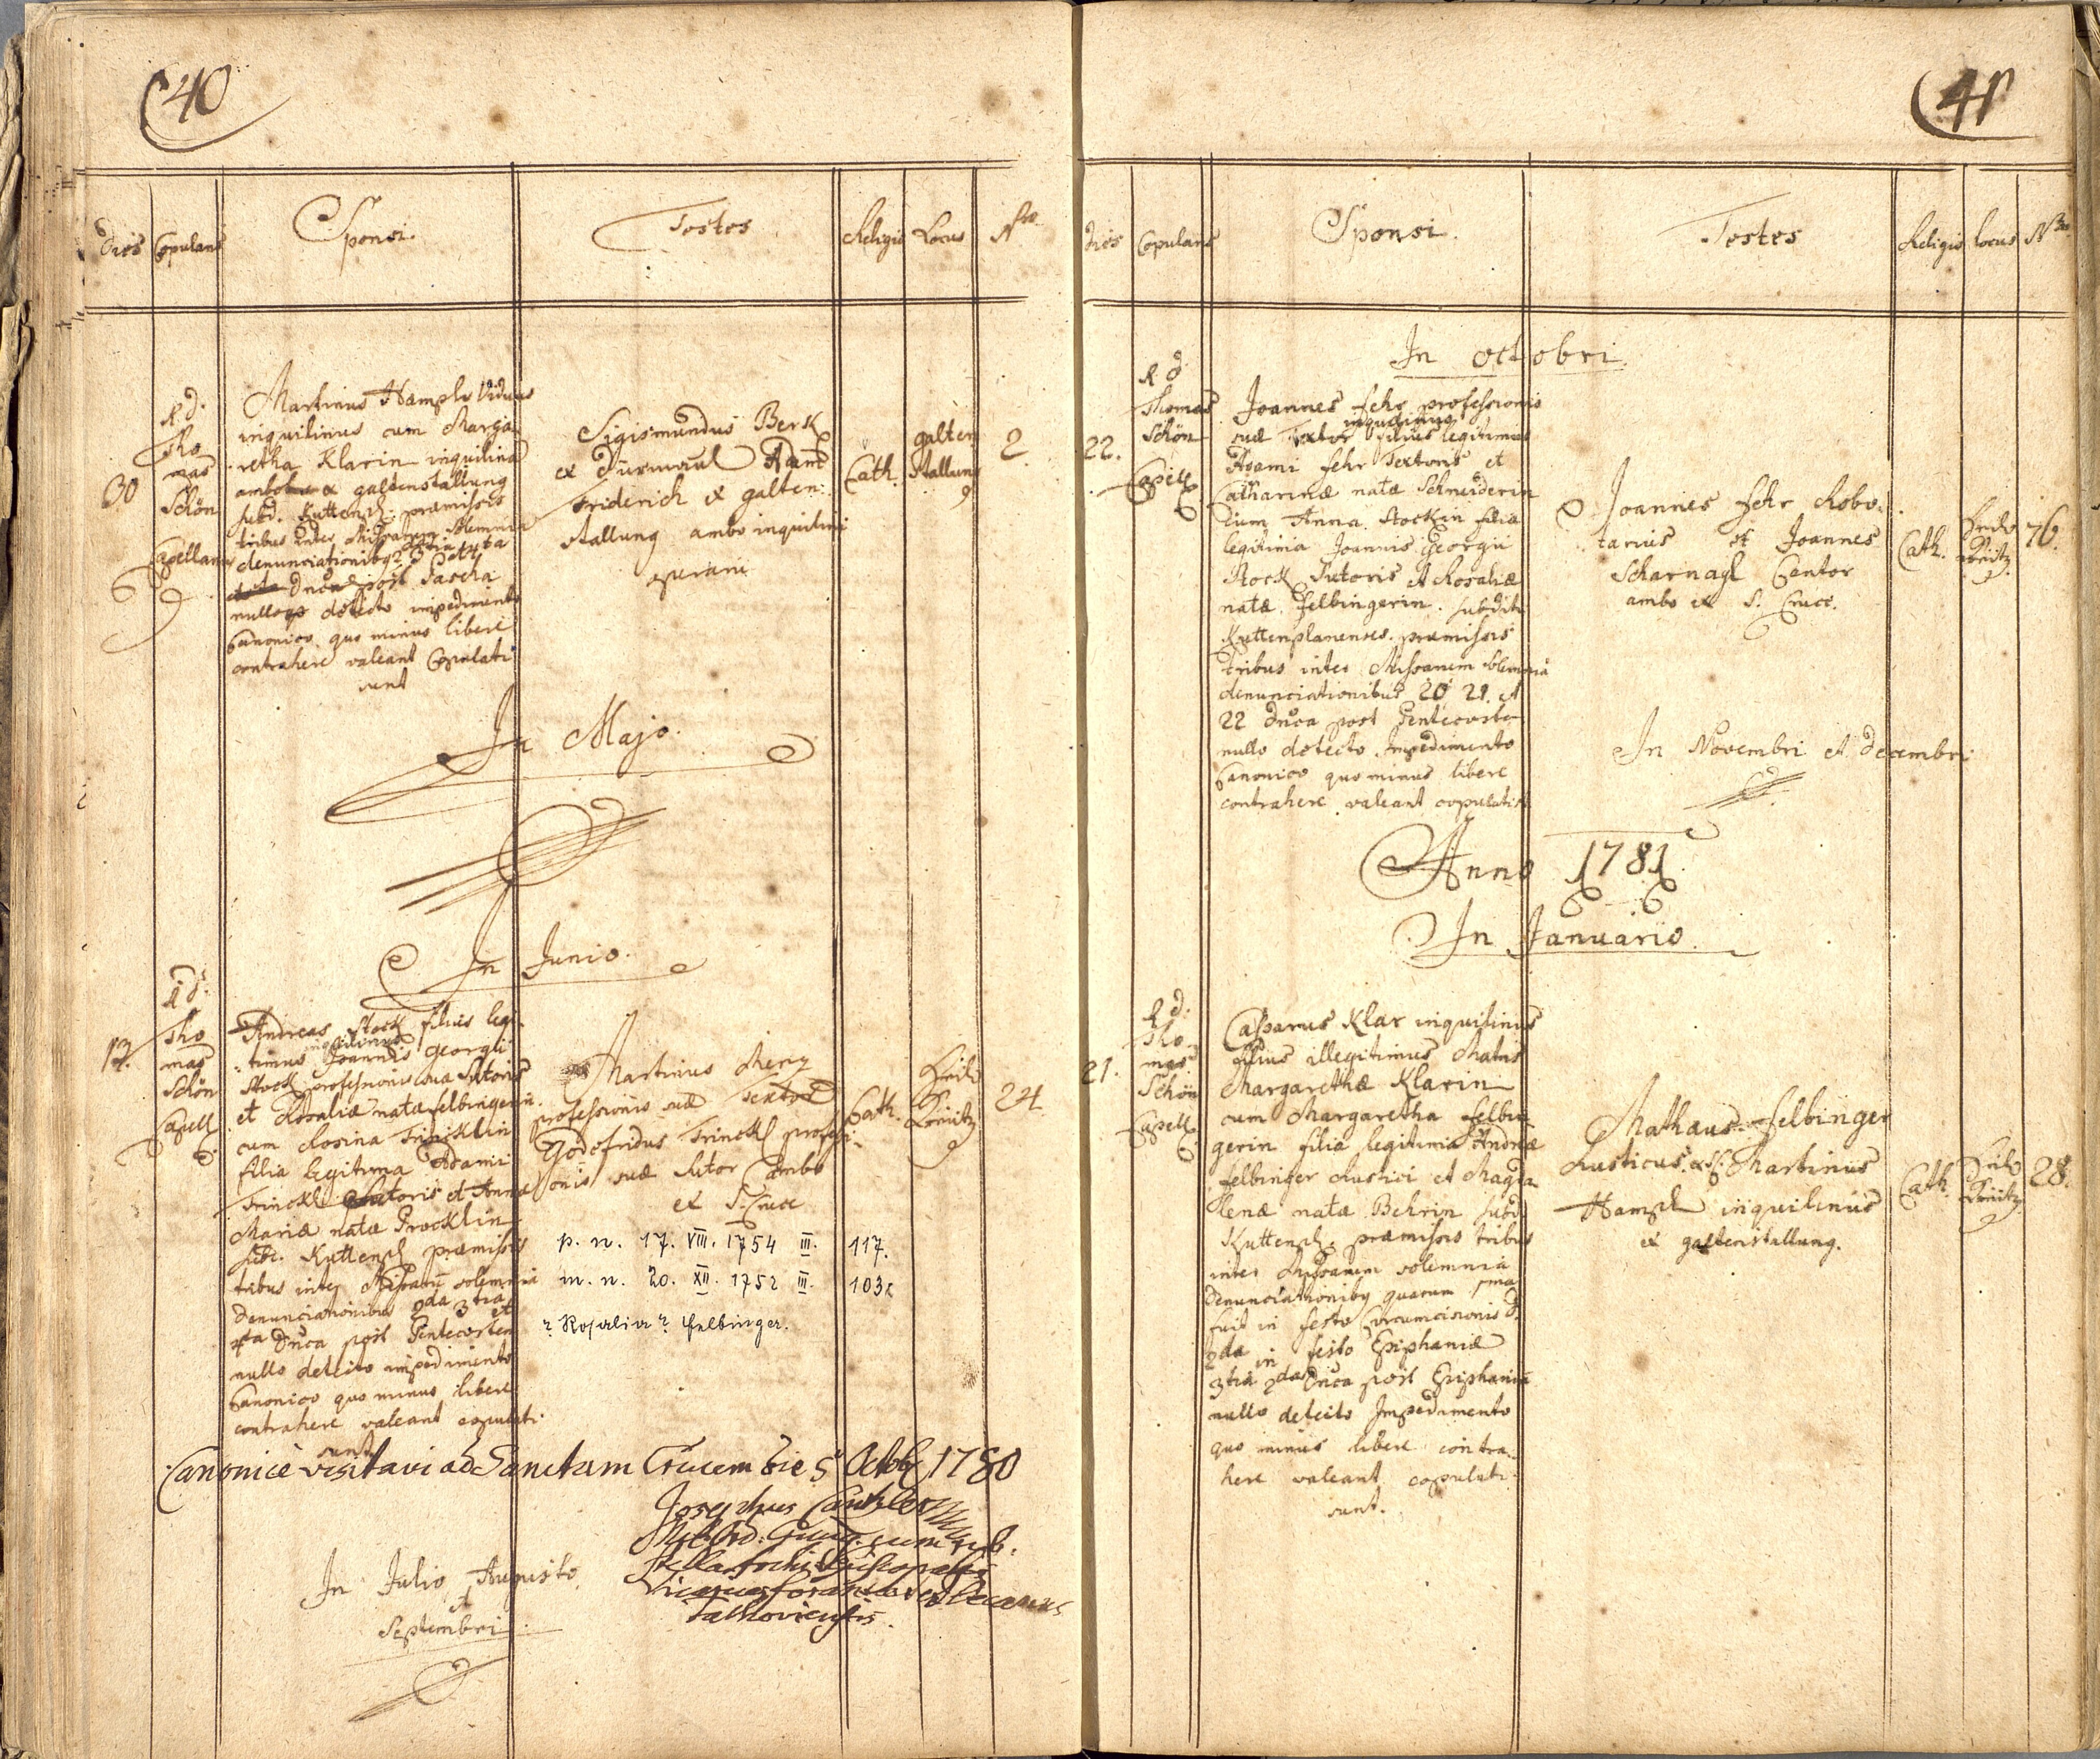 40
Dies Copulans Sponsi. Testes Religio Locus Nro
30
R. d.
Tho
mas
Schön
Capellanus
Martinus Hampl Viduus
inquilinus cum Marga
retha Klarin inquilina
ambo ex galtenstallung
subd. Kuttenpl: præmissis
tribus inter Missarum solemnia
denunciationibq
Dnca post Pascha
nulloqs detecto impedimento
Canonico quo minus libere
contrahere valeant Copulati
sunt
Sigismundus Berk
ex Dürmaul Adam
Friderich ex galten:
stallung ambo inquilini
Cath.
galten
stallung
2
In Majo.
In Junio.
R. d.
Tho
mas
Schön
Capell
Andreas Stock filius legi
inquilinus
timus Joannis Georgii
Stock professionis suæ Sutoris
et Rosaliæ natæ felbingerin.
cum Rosina Trincklin
filia legitima Adami
Trinckl Sutoris et Annæ
Mariæ natæ Procklin
subd. Kuttenpl præmissis
tribus inter Missarum solemnia
denunciationibus 2da 3tia et
4ta Dnca post Pentecosten
nullo detecto impedimento
Canonico quo minus libere
contrahere valeant copulati
sunt
Martinus Menz
professionis suæ Textor
Godefridus Trinckl professi
onis suæ Sutor ambo
ex S. Cruce
Cath.
24
p. n. 17. VIII. 1754 III. 117.
m. n. 20. XII. 1752 III. 103
? Rosalia ? Felbinger.
Canonicè visitavi ad Sanctam Crucem die 5 Octob 1780
Josephus
Vicarius foraneus et Decanus
Tachoviensis
In Julio Augusto
et
Septembri
41
Dies Copulans Sponsi. Testes Religio locus Nro
In octobri
22.
R. d.
Thomas
Schön
Capell
Joannes fehr professionis
inquilinus
suæ Textor filius legitimus
Adami fehr Textoris et
Catharinæ natæ Schneiderin
cum Anna Stockin filia
legitima Joannis Georgii
Stock Sutoris et Rosaliæ
natæ felbingerin. subditi
Kuttenplanenses. præmissis
tribus inter Missarum solemnia
denunciationibus 20 21. et
22 Dnca post Pentecosten
nullo detecto Impedimento
Canonico quo minus libere
contrahere valeant copulati
Joannes fehr Robo:
tarius et Joannes
Scharnagl Cantor
ambo ex S. Cruce.
Cath.
76.
In Novembri et decembri
Anno 1781.
In Januario.
21.
R. d.
Tho
mas
Schön
Capell
Casparus Klar inquilinus
filius illegitimus Matris
Margarethæ Klarin
cum Margaretha felbin
gerin filia legitima Andreæ
felbinger Rustici et Magda
lenæ nata Behrin subd.
Kuttenpl. præmissis tribus
inter Missarum solemnia
denunciationibq quarum 1ma
fuit in festo Circumcisionis D.
2da in festo Epiphaniæ
3tia 2da Dnca post Epiphaniā
nullo detecto Impedimento
quo minus libere contra:
here valeant copulati
sunt.
Mathaus felbinger
Rusticus. Martinus
Hampl inquilinus
ex galtenstallung.
Cath.
28.